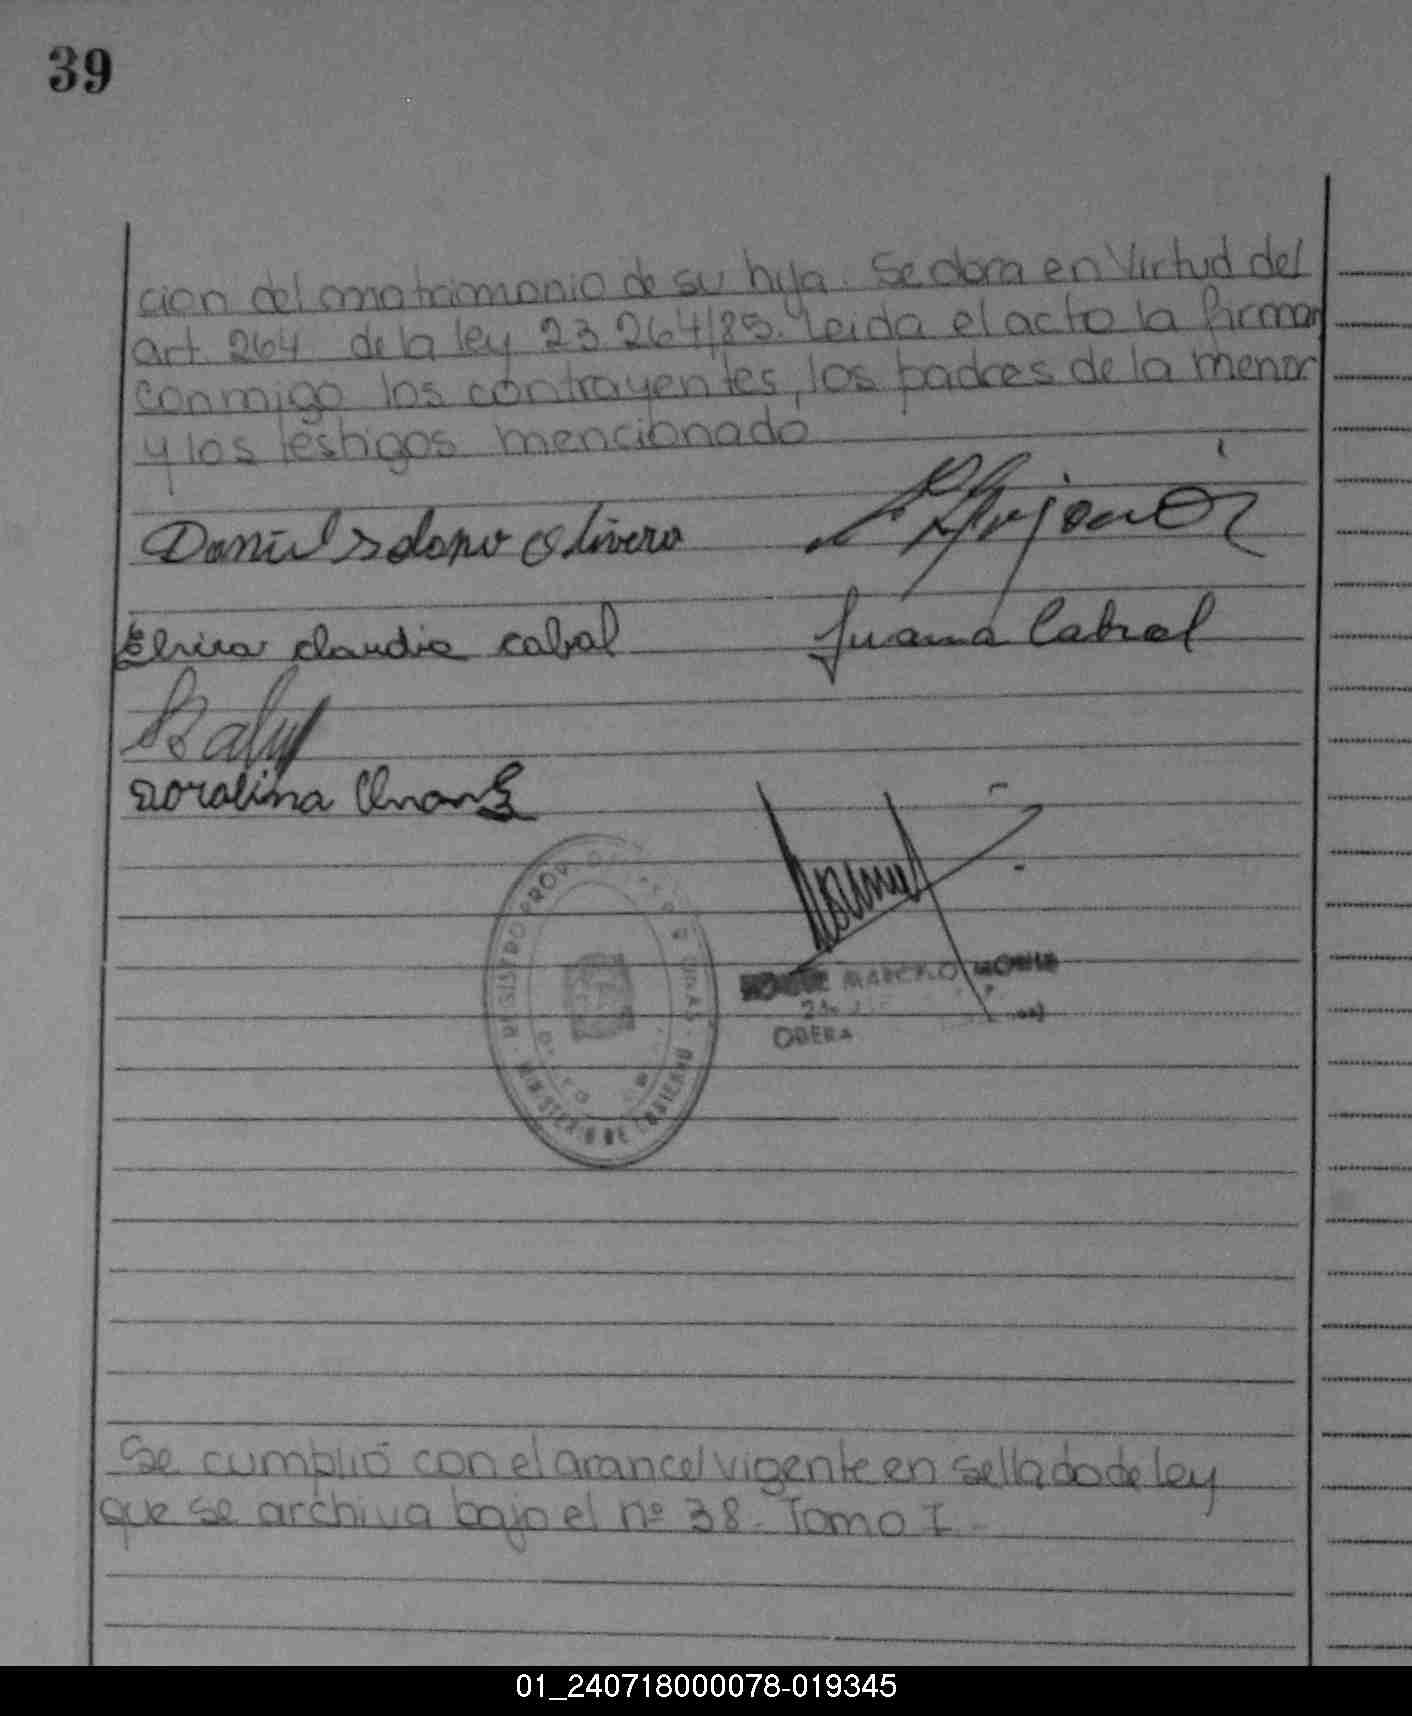 39
cion del matrimonio de su hija. Se dara en Virtud del
art. 264 de la ley 23 264/85. Leida el acto la firman
conmigo los contrayentes, los padres de la menor
y los testigos mencionado
Daniel Solano Olivera
Elvira Claudia Cabral
Juana Cabral
Doralina
REGISTRO PROV. DE LAS PERSONAS
MINISTERIO DE GOBIERNO
MARCELO
OBERA
Se cumplió con el arancel vigente en sellado de ley
que se archiva bajo el nº 38 - Tomo I -
01_240718000078-019345